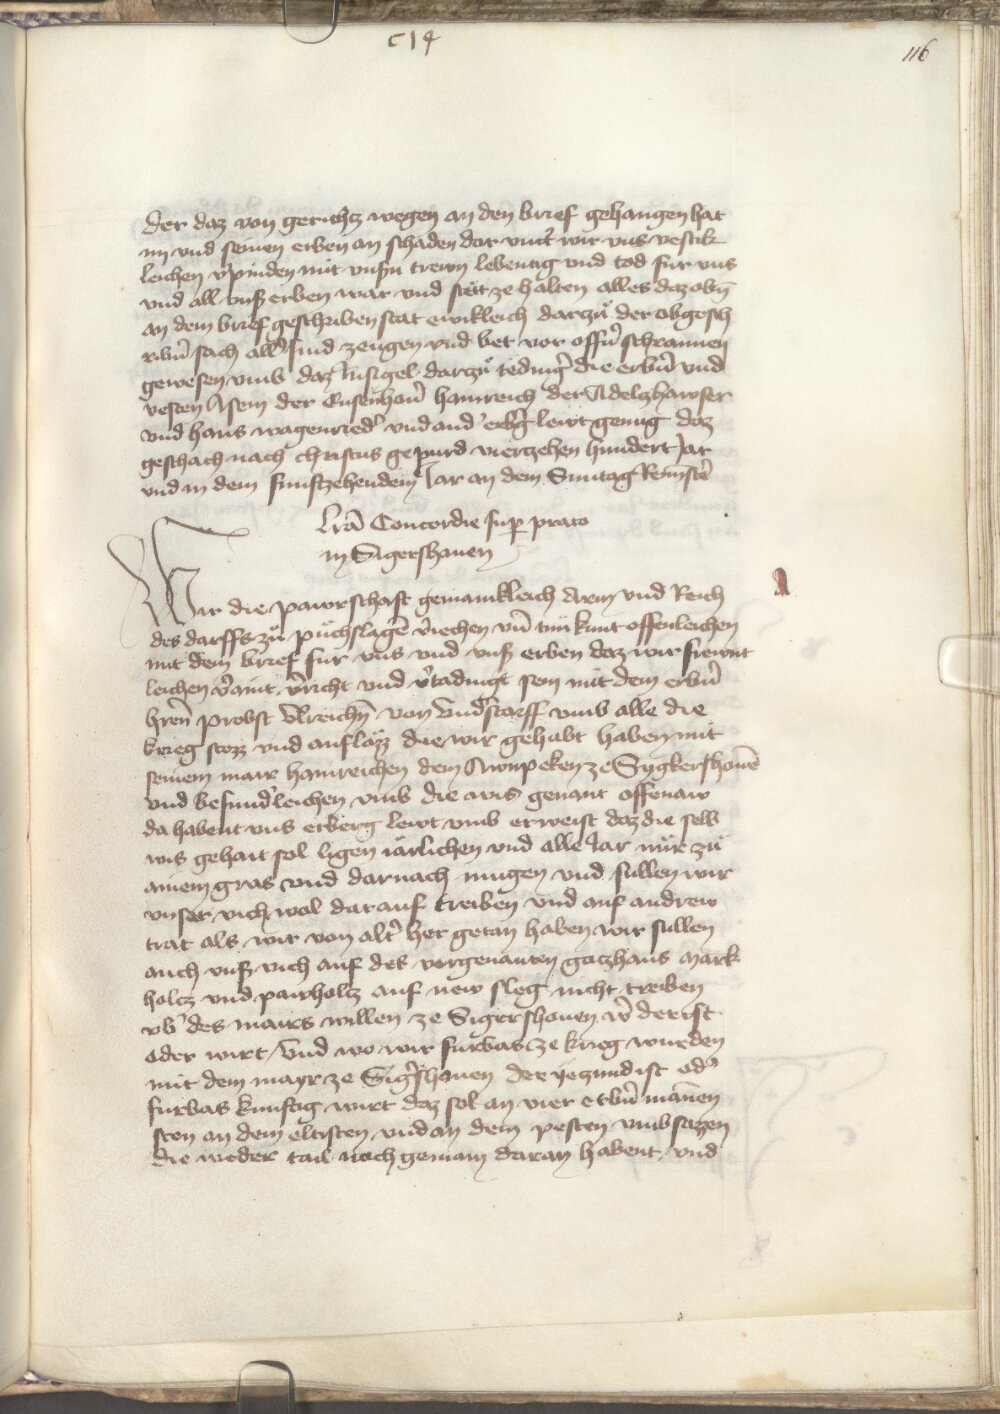 c14
116
der daz von gerichtz wegen an den brief gehangen hat
im vnd seinen erben an schaden dar vnt͛ wir vns vestik
leichen v͛pinden mit vnsṇ trewn lebentig vnd tod fur vns
vnd all vnß erben war vnd stät ze halten alles daz obg̃
an dem brief geschriben stat ewikleich darzů der obgesch
ribñ sach all͛ sind zeugen vnd bet vor offn͛ schrannen
gewesen vmb daz Insigel darzů teding͛ die erbñ vnd
vesten Asem der Eusenhou͛ hainreich der Adelzhawser
vnd hans wagenried͛ vnd and͛ erb͛g lewt genug daz
geschach nach christus gepurd vierzehen hundert Jar
vnd in dem funftzehendem Jar an dem Suntag Remĩscẽ
Lr̃a Concordie sup prato
in Sigershauen
Wir die pawrschaft gemainkleich Arm vnd Reich
des darffs zů půchslagẽ v͛iechen vñ tuň kunt offenleichen
mit dem brief für vns vnd vnß erben daz wir frewnt
leichen v͛aint v͛richt vnd v͛tadingt sein mit dem erbñ
hern̄ probst Vlreichn̄ von Vnd͛storff vmb alle die
krieg stozz vnd aufläzz die wir gehabt haben mit
seinem mair hainreichen dem ze Sygkershouẽ
vnd besund͛leichen vmb die wis genant offenaw
da habent vns erberg lewt vmb erweist daz die selb
wis gehait sol ligen iärlichen vnd alle Jar nür zů
ainem gras vnd darnach mugen vnd süllen wir
vnser vich wol darauf treiben vnd auf andrew
trat als wir von alt͛ her getan haben wir süllen
auch vnß vich auf des vorgenanten gotzhaus Mark
holcz vnd pawholcz auf new sleg nicht treiben
vb͛ des mairs willen ze Sigershouen w͛ der ist
oder wirt / Vnd wo wir furbas ze krieg wurden
mit dem mayr ze Sig͛shouen der yeczund ist od͛
furbas kunftig wirt daz sol an vier erbñ mãnen
sten an dem eltisten vnd an dem pesten vmbsazzen
die weder tail noch gemain daran habent / vnd